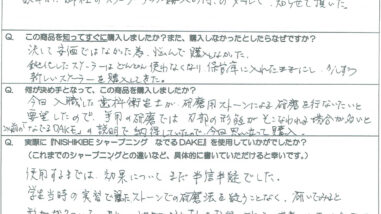 Q. この商品を知ってすぐに購入しましたか?また、購入しなかったとしたらなぜですか?
決して安価ではなかった為、悩んで購入しなかった。
鈍化したスケーラーはどんどん使わなくなり保管庫に入れたままにし、
新しいスケーラーを購入してきた。
Q. 何が決め手となって、この商品を購入しましたか?
今回入職した歯科衛生士が、研磨用ストーンによる研磨を行ないたいと
要望したので、手用の研磨では刃部の形態がそこなわれる場合が多いと
「なでるDAKE」の説明で納得していたので今回思い立って購入。
Q. 実際に『NISHIKIBEシャープニング なでるDAKE』を使用していかがでしたか?
(これまでのシャープニングとの違いなど、具体的に書いていただけると幸いです。)
使用するまでは、効果についてまだ半信半疑でした。
学生当時の実習で習ったストーンでの研磨法を疑うことなく、